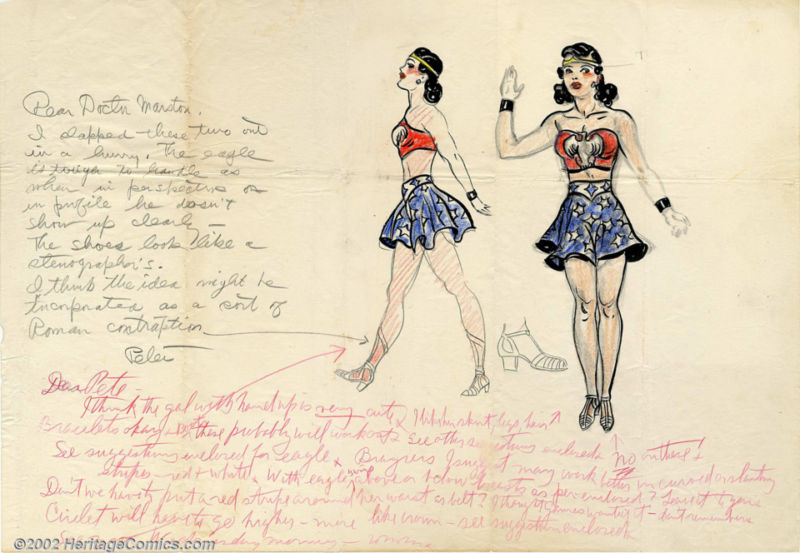 Dear Doctor Marston,
I slapped these two out
in a hurry. The eagle
is tough to handle as
when in perspective or
in profile he doesn't
show up clearly —
The shoes look like a
stenographer's.
I think the idea might be
incorporated as a sort of
Roman contraption
Peter
Dear Pete —
I think the gal with hand up is very cute. I like her skirt, legs, hair
Bracelets okay & boots these probably will work out. See other suggestions enclosed. No on these &
See suggestions enclosed for eagle &
stripes — red & white. With eagle's wings above or below breasts as per enclosed? Leave it to you
Don't we have to put a red stripe around her waist as belt? I thought Gaines wanted it — don't remember
Circlet will have to go higher — more like crown — see suggestion enclosed
See you Wednesday morning —
©2002 HeritageComics.com